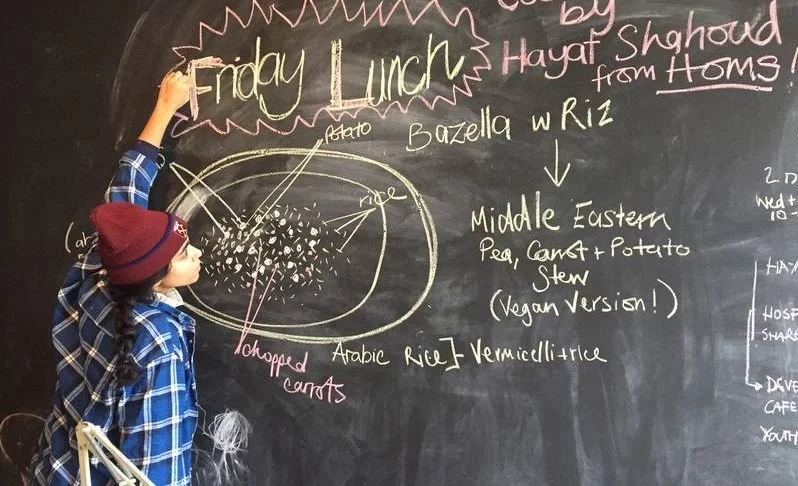 by
Hayat Shahoud
from Homs
Friday Lunch
Potato
rice
chopped
carrots
Bazella w Riz
Middle Eastern
Pea, Carrot + Potato
Stew
(Vegan version!)
Arabic Rice } - Vermicelli + rice
Wed +
10 -
CAFE
YOUTH